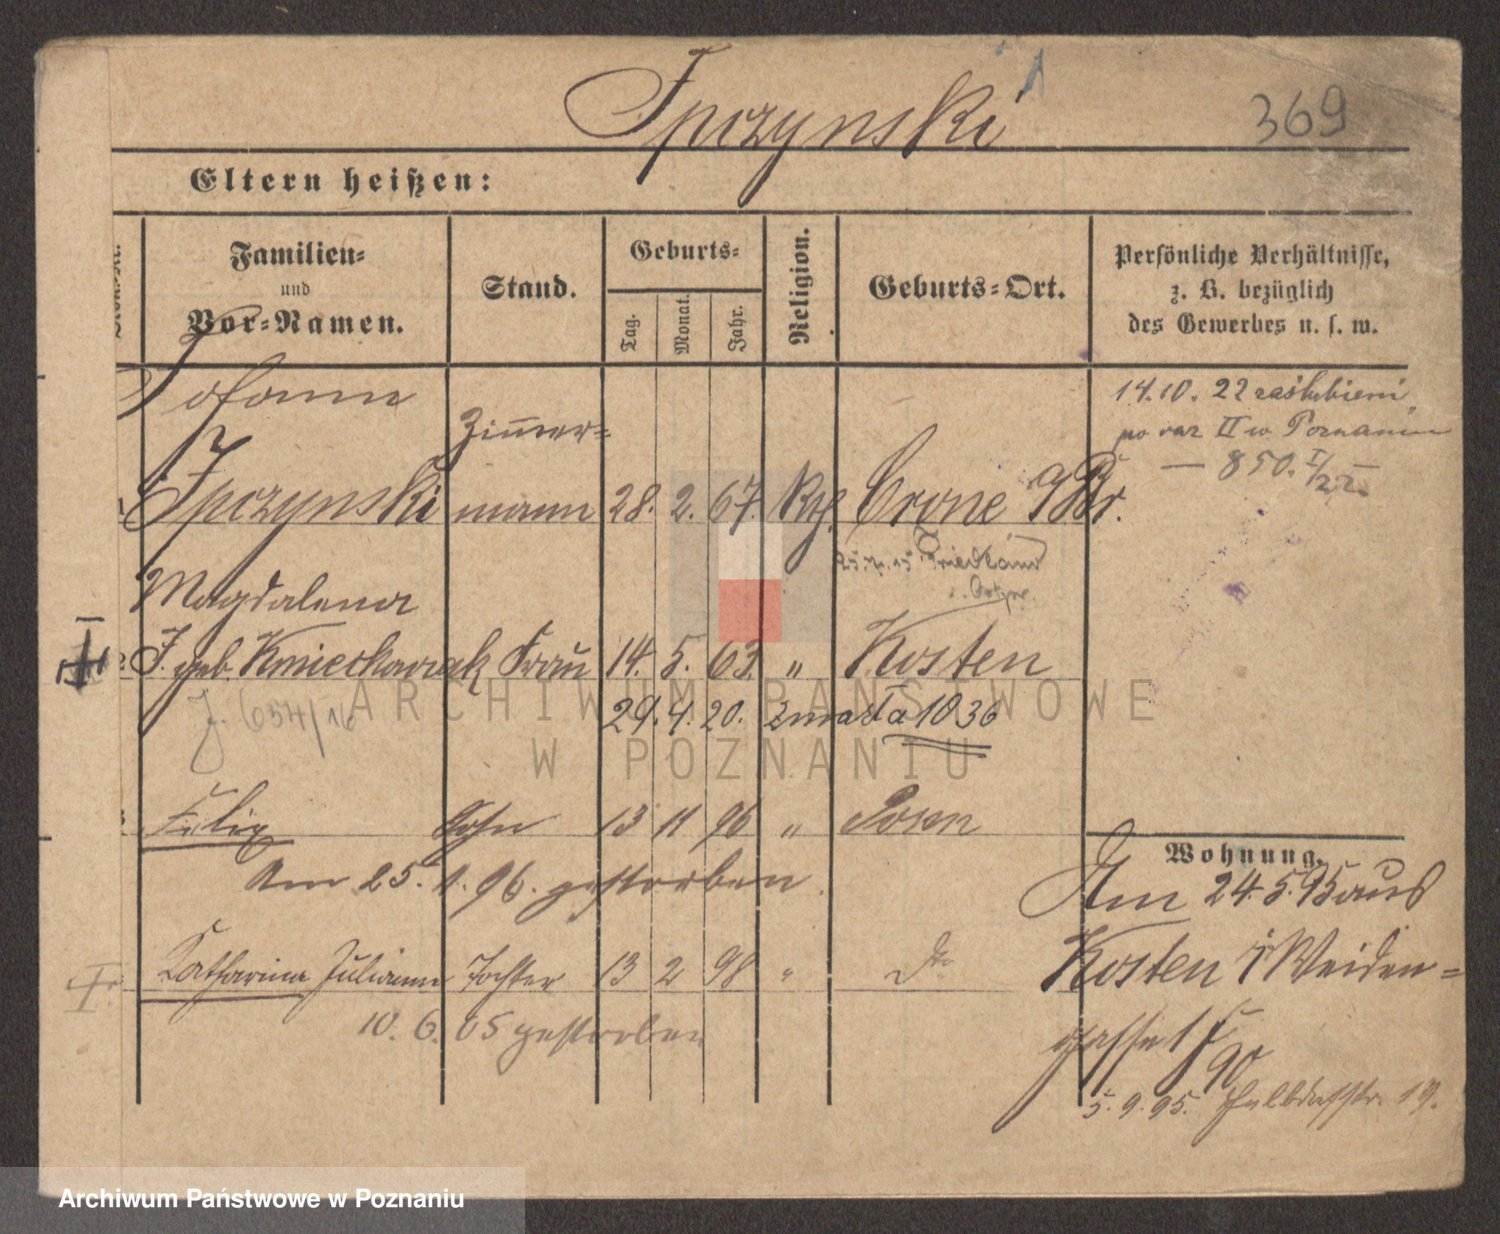 Ipczynski
369
Eltern heißen:
Familien=
und
Vor=Namen.
Stand.
Geburts=
Tag.
Monat.
Jahr.
Religion.
Geburts=Ort.
Persönliche Verhältnisse,
z. B. bezüglich
des Gewerbes u. s. w.
Johann
Ipczynski
Zimmer=
mann
28. 2. 67. Crone a/Br.
14.10.22 zaślubieni
po raz II w Poznaniu
— 850. I/22 —
25. 7. 15 Friedland
i. Ostpr
Magdalena
I. geb. Kmieckowiak Frau 14. 5. 63. " Kosten
J. 654/16
29. 4. 20. zmarła 1036
Filip Sohn 13 11 96 " Posen
Am 25. 1. 96. gestorben.
Katharina Julianna Tochter 13 2 98 " Do
10. 6. 05 gestorben
Wohnung.
Am 24.5.95 aus
Kosten Weiden=
gasse
5. 9. 95. Halbdorfstr. 19.
ARCHIWUM PAŃSTWOWE
W POZNANIU
Archiwum Państwowe w Poznaniu